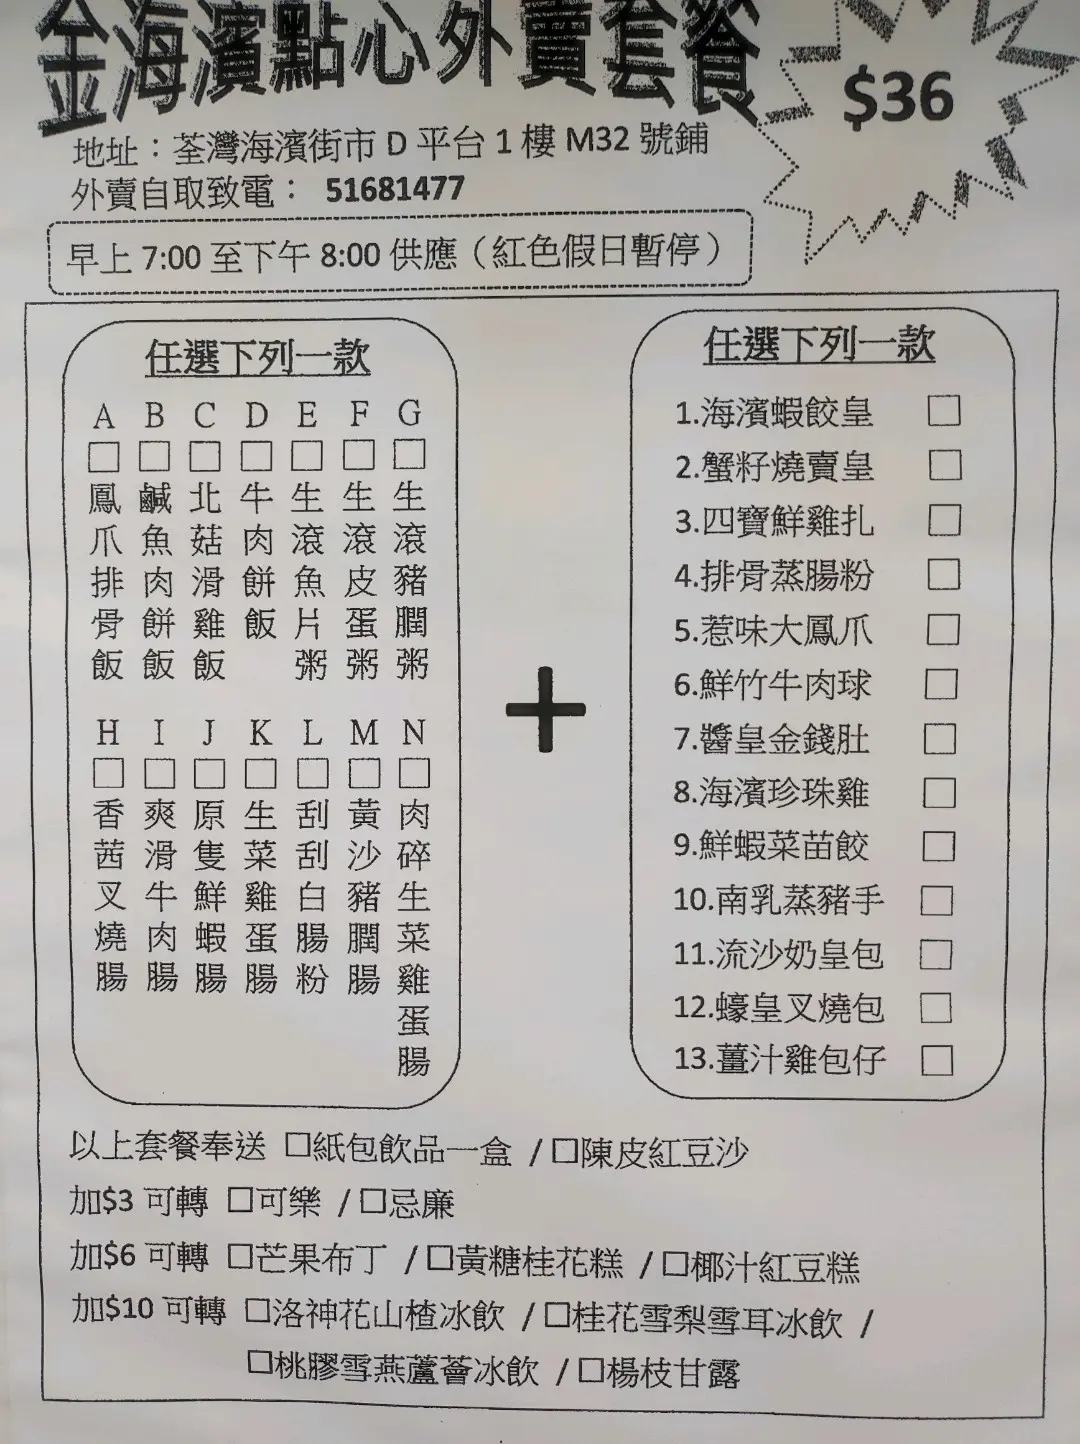 金海濱點心外賣套餐
$36
地址：荃灣海濱街市 D 平台 1 樓 M32 號鋪
外賣自取致電： 51681477
早上 7:00 至下午 8:00 供應（紅色假日暫停）
任選下列一款
A □ 鳳爪排骨飯
B □ 鹹魚肉餅飯
C □ 北菇滑雞飯
D □ 牛肉餅飯
E □ 生滾魚片粥
F □ 生滾皮蛋粥
G □ 生滾豬膶粥
H □ 香茜叉燒腸
I □ 爽滑牛肉腸
J □ 原隻鮮蝦腸
K □ 生菜雞蛋腸
L □ 刮刮白腸粉
M □ 黃沙豬膶腸
N □ 肉碎生菜雞蛋腸
+
任選下列一款
1.海濱蝦餃皇 □
2.蟹籽燒賣皇 □
3.四寶鮮雞扎 □
4.排骨蒸腸粉 □
5.惹味大鳳爪 □
6.鮮竹牛肉球 □
7.醬皇金錢肚 □
8.海濱珍珠雞 □
9.鮮蝦菜苗餃 □
10.南乳蒸豬手 □
11.流沙奶皇包 □
12.蠔皇叉燒包 □
13.薑汁雞包仔 □
以上套餐奉送 □紙包飲品一盒 / □陳皮紅豆沙
加$3 可轉 □可樂 / □忌廉
加$6 可轉 □芒果布丁 / □黃糖桂花糕 / □椰汁紅豆糕
加$10 可轉 □洛神花山楂冰飲 / □桂花雪梨雪耳冰飲 /
□桃膠雪燕蘆薈冰飲 / □楊枝甘露